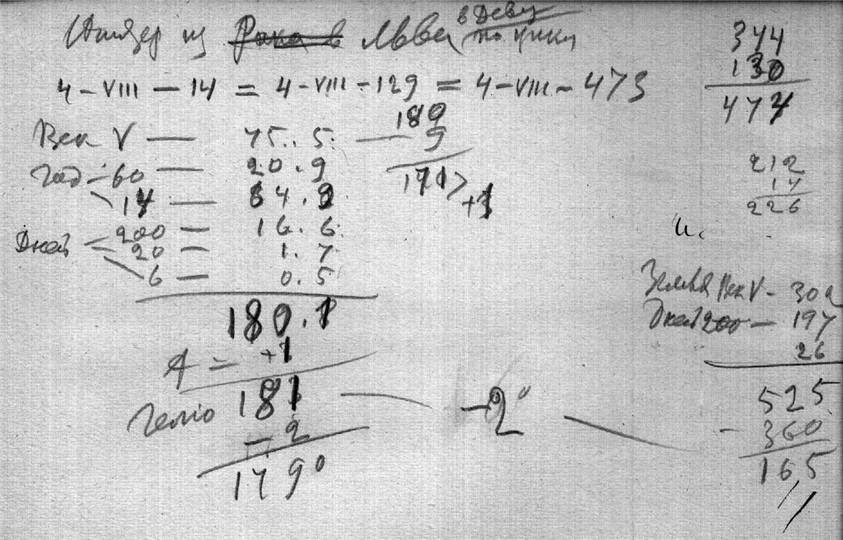 в Деву
Юпитер из Рака в Льва по циклу
4-VIII-14 = 4-VIII-129 = 4-VIII-473
344
130
474
Век V — 75.5 — 189
9
171 > +1
год 60 — 20.9
14 — 64.9
Дней 200 — 16.6
20 — 1.7
6 — 0.5
180.1
A = +1
Гелио 181 — -2°
-2
179°
212
14
226
Земля Век V - 302
Дней 200 — 197
26
525
- 360
165